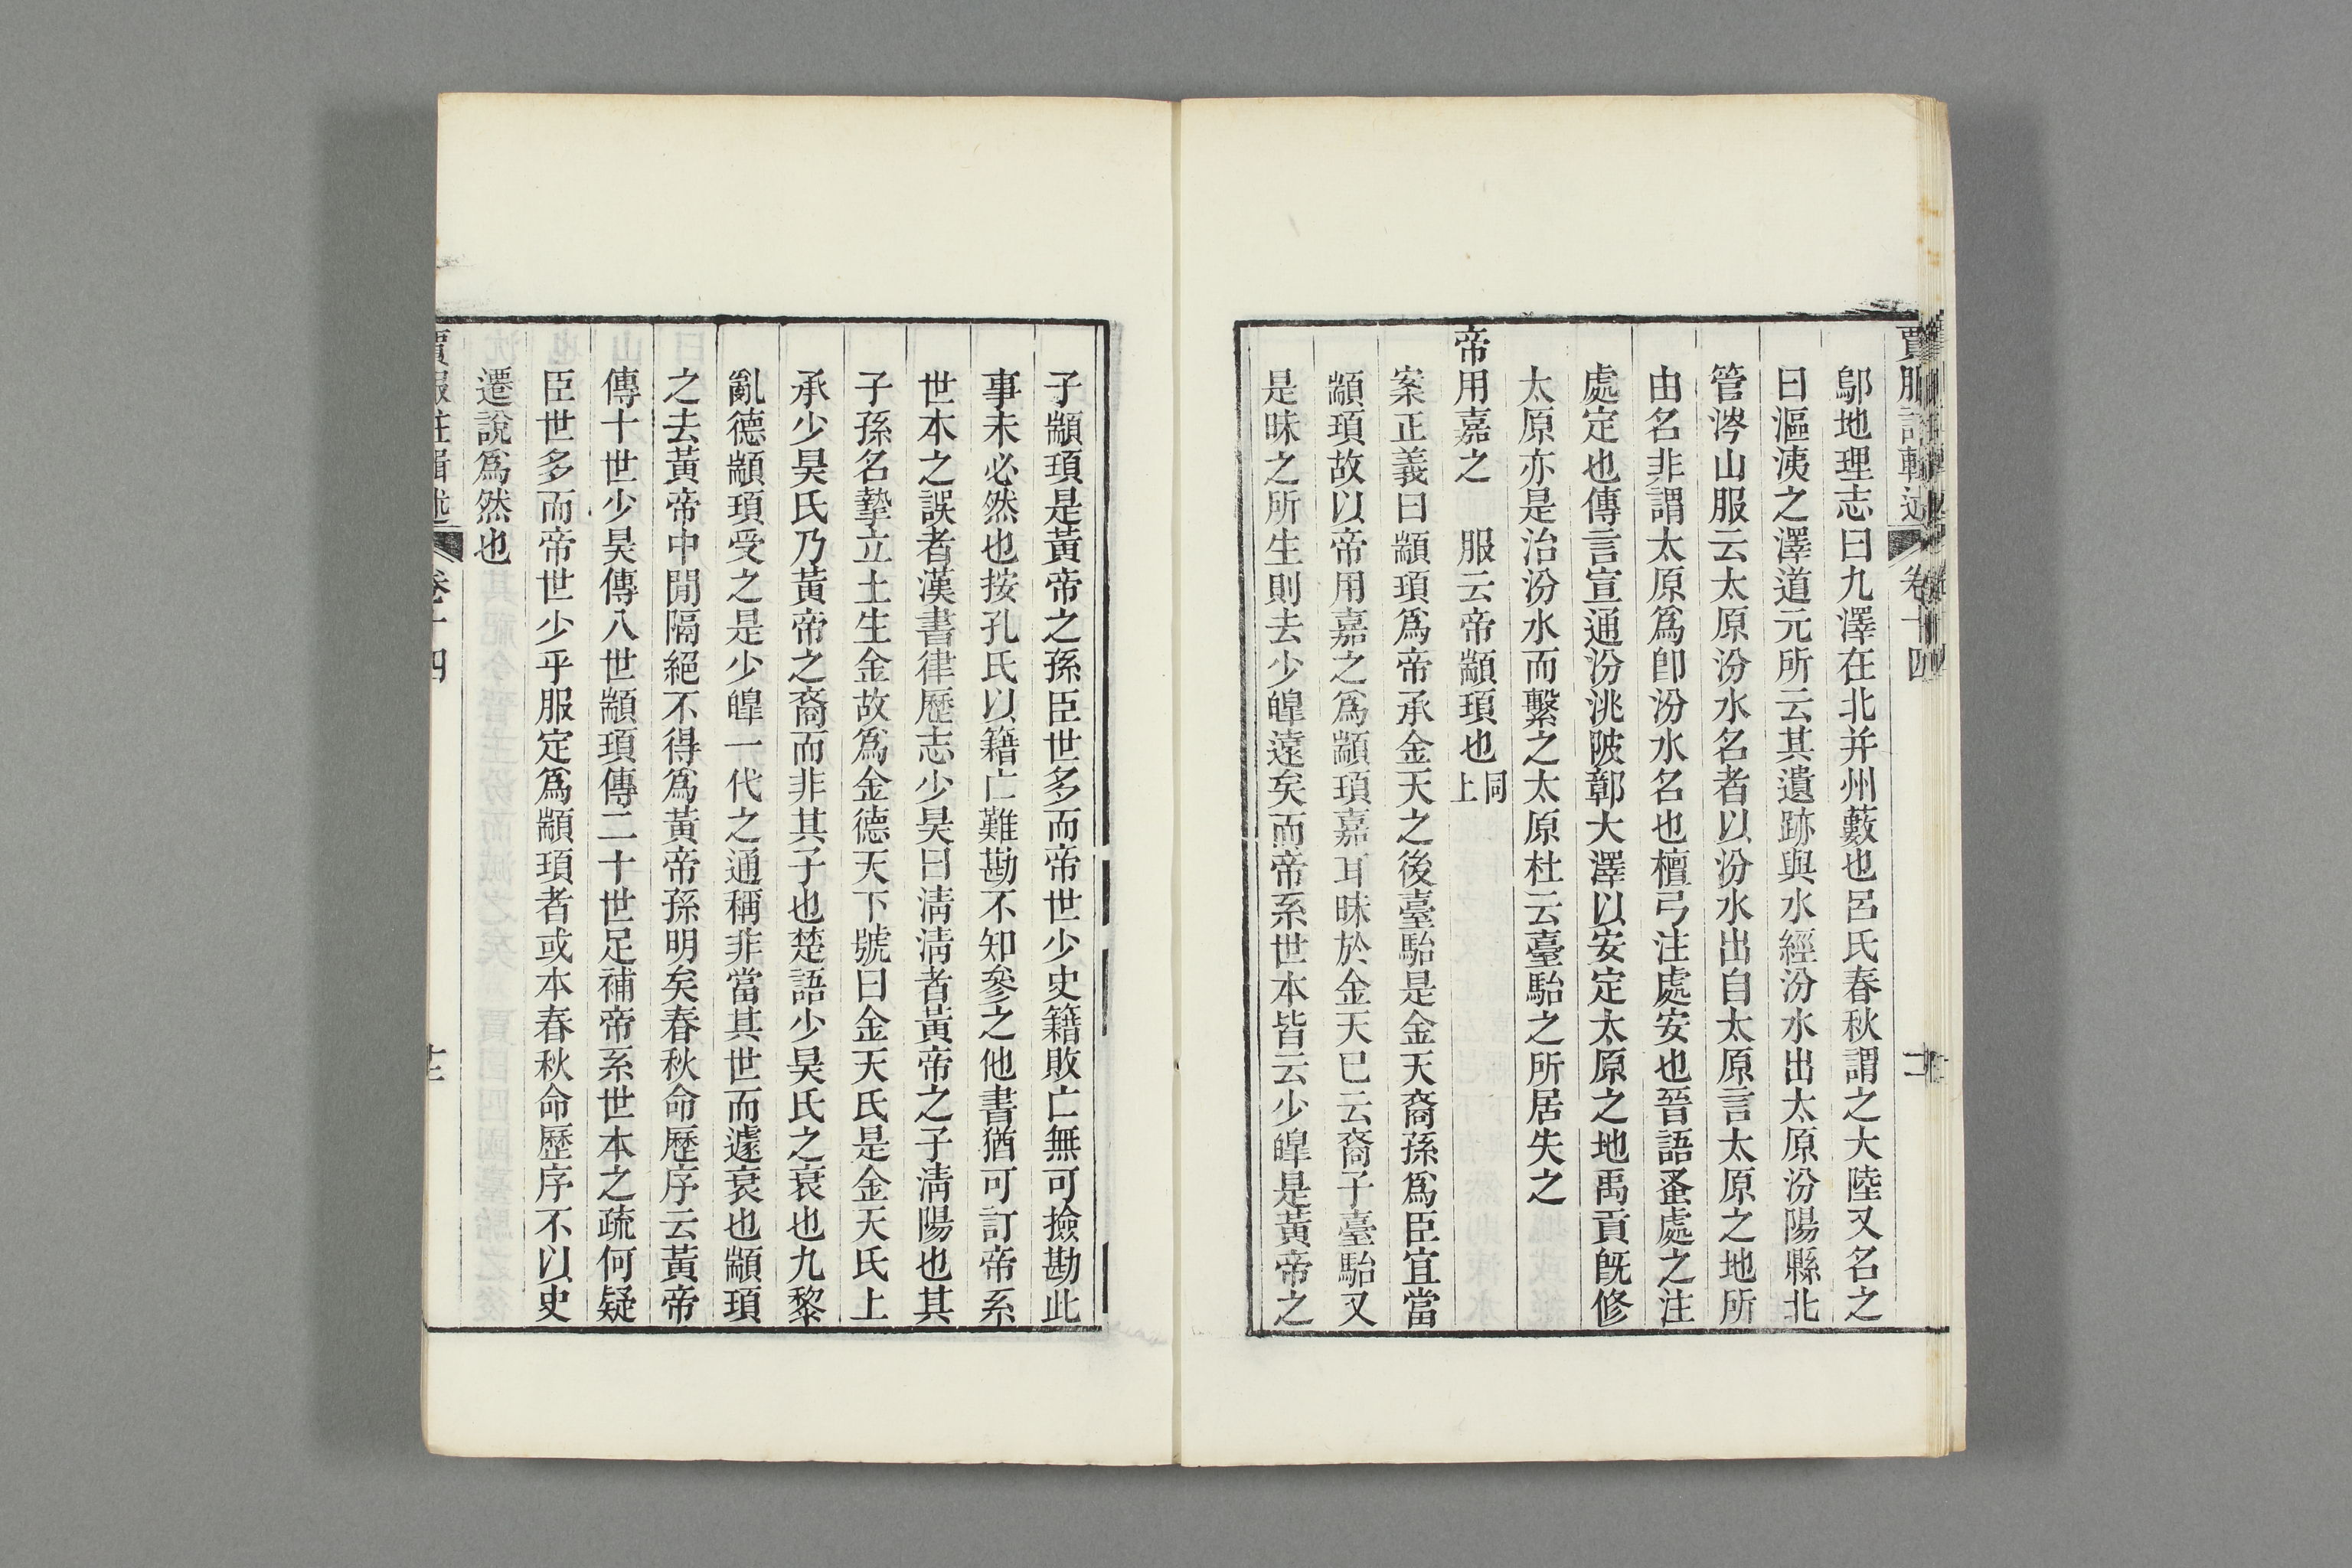 鄔地理志曰九澤在北并州藪也呂氏春秋謂之大陸又名之
曰漚洟之澤道元所云其遺跡與水經汾水出太原汾陽縣北
管涔山服云太原汾水名者以汾水出自太原言太原之地所
由名非謂太原爲卽汾水名也檀弓注處安也晉語蚤處之注
處定也傳言宣通汾洮陂鄣大澤以安定太原之地禹貢旣修
太原亦是治汾水而繫之太原杜云臺駘之所居失之
帝用嘉之 服云帝顓頊也同上
案正義曰顓頊爲帝承金天之後臺駘是金天裔孫爲臣宜當
顓頊故以帝用嘉之爲顓頊嘉耳昧於金天已云裔子臺駘又
是昧之所生則去少皞遠矣而帝系世本皆云少皞是黃帝之
子顓頊是黃帝之孫臣世多而帝世少史籍敗亡無可撿勘此
事未必然也按孔氏以籍亡難勘不知參之他書猶可訂帝系
世本之誤者漢書律歷志少昊曰淸淸者黃帝之子淸陽也其
子孫名摯立土生金故爲金德天下號曰金天氏是金天氏上
承少昊氏乃黃帝之裔而非其子也楚語少昊氏之衰也九黎
亂德顓頊受之是少皞一代之通稱非當其世而遽衰也顓頊
之去黃帝中閒隔絕不得爲黃帝孫明矣春秋命歷序云黃帝
傳十世少昊傳八世顓頊傳二十世足補帝系世本之疏何疑
臣世多而帝世少乎服定爲顓頊者或本春秋命歷序不以史
遷說爲然也
賈服注輯述 卷十四